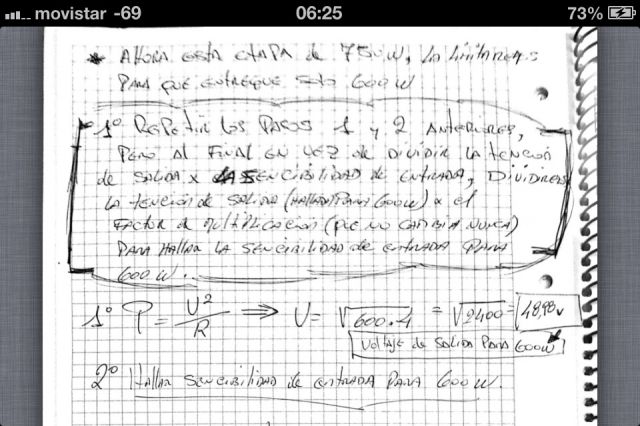 movistar -69 06:25 73%
* AHORA ESTA ETAPA de 750W, LA limitaremos
PARA QUE ENTREGUE SOLO 600W
1º REPETIR LOS PASOS 1 y 2 ANTERIORES,
PERO AL FINAL EN VEZ de DIVIDIR LA TENCION
de SALIDA x LA SENCIBILIDAD DE ENTRADA, DIVIDIREMOS
LA TENCION de SALIDA (HALLADA PARA 600W) x el
FACTOR de MULTIPLICACION (QUE NO CAMBIA NUNCA)
PARA HALLAR LA SENCIBILIDAD de ENTRADA PARA
600W.
1º P = U²/R ⇒ U = √600.4 = √2400 = 48,98v
VOLTAJE de SALIDA PARA 600W
2º HALLAR SENCIBILIDAD de ENTRADA PARA 600W.